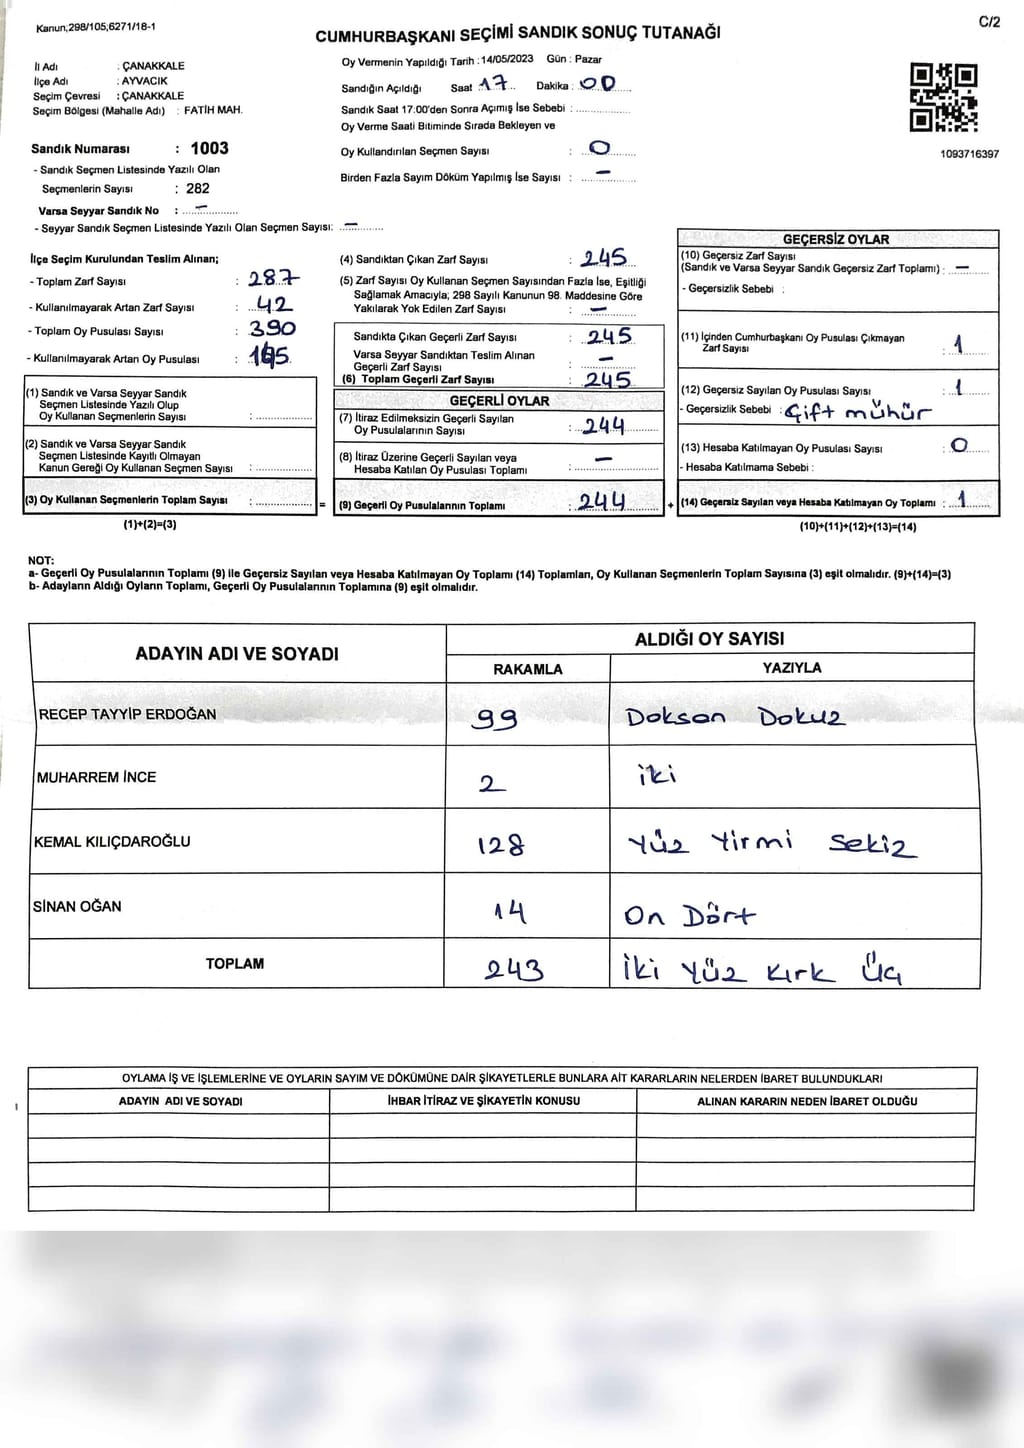 Kanun;298/105;6271/18-1
C/2
CUMHURBAŞKANI SEÇİMİ SANDIK SONUÇ TUTANAĞI
İl Adı : ÇANAKKALE
İlçe Adı : AYVACIK
Seçim Çevresi : ÇANAKKALE
Seçim Bölgesi (Mahalle Adı) : FATİH MAH.
Sandık Numarası : 1003
- Sandık Seçmen Listesinde Yazılı Olan
Seçmenlerin Sayısı : 282
Varsa Seyyar Sandık No : –
- Seyyar Sandık Seçmen Listesinde Yazılı Olan Seçmen Sayısı: –
Oy Vermenin Yapıldığı Tarih : 14/05/2023 Gün : Pazar
Sandığın Açıldığı Saat : 17 Dakika : 00
Sandık Saat 17:00'den Sonra Açımış İse Sebebi :
Oy Verme Saati Bitiminde Sırada Bekleyen ve
Oy Kullandırılan Seçmen Sayısı : 0
Birden Fazla Sayım Döküm Yapılmış İse Sayısı : –
1093716397
İlçe Seçim Kurulundan Teslim Alınan;
- Toplam Zarf Sayısı : 287
- Kullanılmayarak Artan Zarf Sayısı : 42
- Toplam Oy Pusulası Sayısı : 390
- Kullanılmayarak Artan Oy Pusulası :
(1) Sandık ve Varsa Seyyar Sandık
Seçmen Listesinde Yazılı Olup
Oy Kullanan Seçmenlerin Sayısı :
(2) Sandık ve Varsa Seyyar Sandık
Seçmen Listesinde Kayıtlı Olmayan
Kanun Gereği Oy Kullanan Seçmen Sayısı :
(3) Oy Kullanan Seçmenlerin Toplam Sayısı : =
(1)+(2)=(3)
(4) Sandıktan Çıkan Zarf Sayısı : 245
(5) Zarf Sayısı Oy Kullanan Seçmen Sayısından Fazla İse, Eşitliği
Sağlamak Amacıyla; 298 Sayılı Kanunun 98. Maddesine Göre
Yakılarak Yok Edilen Zarf Sayısı : –
Sandıkta Çıkan Geçerli Zarf Sayısı : 245
Varsa Seyyar Sandıktan Teslim Alınan
Geçerli Zarf Sayısı : –
(6) Toplam Geçerli Zarf Sayısı : 245
GEÇERLİ OYLAR
(7) İtiraz Edilmeksizin Geçerli Sayılan
Oy Pusulalarının Sayısı : 244
(8) İtiraz Üzerine Geçerli Sayılan veya
Hesaba Katılan Oy Pusulası Toplamı : –
(9) Geçerli Oy Pusulalarının Toplamı : 244 +
GEÇERSİZ OYLAR
(10) Geçersiz Zarf Sayısı
(Sandık ve Varsa Seyyar Sandık Geçersiz Zarf Toplamı) : –
- Geçersizlik Sebebi :
(11) İçinden Cumhurbaşkanı Oy Pusulası Çıkmayan
Zarf Sayısı : 1
(12) Geçersiz Sayılan Oy Pusulası Sayısı : 1
- Geçersizlik Sebebi : Çift mühür
(13) Hesaba Katılmayan Oy Pusulası Sayısı : 0
- Hesaba Katılmama Sebebi :
(14) Geçersiz Sayılan veya Hesaba Katılmayan Oy Toplamı : 1
(10)+(11)+(12)+(13)=(14)
NOT:
a- Geçerli Oy Pusulalarının Toplamı (9) ile Geçersiz Sayılan veya Hesaba Katılmayan Oy Toplamı (14) Toplamları, Oy Kullanan Seçmenlerin Toplam Sayısına (3) eşit olmalıdır. (9)+(14)=(3)
b- Adayların Aldığı Oyların Toplamı, Geçerli Oy Pusulalarının Toplamına (9) eşit olmalıdır.
ADAYIN ADI VE SOYADI
ALDIĞI OY SAYISI
RAKAMLA YAZIYLA
RECEP TAYYİP ERDOĞAN 99 Doksan Dokuz
MUHARREM İNCE 2 iki
KEMAL KILIÇDAROĞLU 128 Yüz Yirmi Sekiz
SİNAN OĞAN 14 On Dört
TOPLAM 243 İki Yüz Kırk Üç
OYLAMA İŞ VE İŞLEMLERİNE VE OYLARIN SAYIM VE DÖKÜMÜNE DAİR ŞİKAYETLERLE BUNLARA AİT KARARLARIN NELERDEN İBARET BULUNDUKLARI
ADAYIN ADI VE SOYADI İHBAR İTİRAZ VE ŞİKAYETİN KONUSU ALINAN KARARIN NEDEN İBARET OLDUĞU